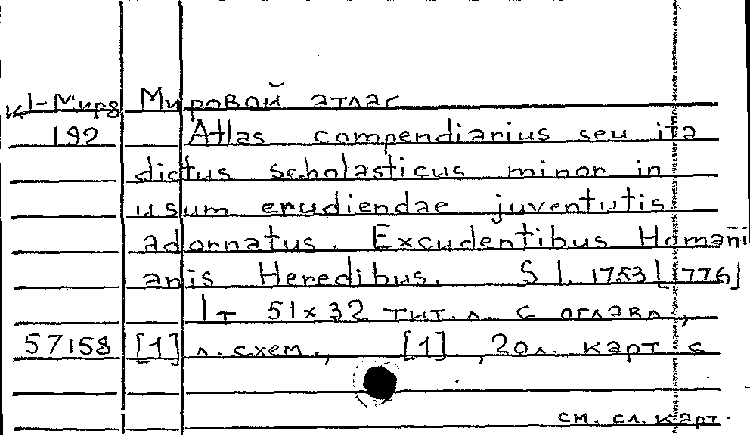 К1-Мира Мировой атлас
192 Atlas compendiarius seu ita
dictus scholasticus minor in
usum erudiendae juventutis
adornatus. Excudentibus Homañi
anis Heredibus. S l. 1753[1776]
1т 51×32 тит. л. с оглавл.,
57158 [1] л. схем., [1], 20л. карт с
см. сл. карт.